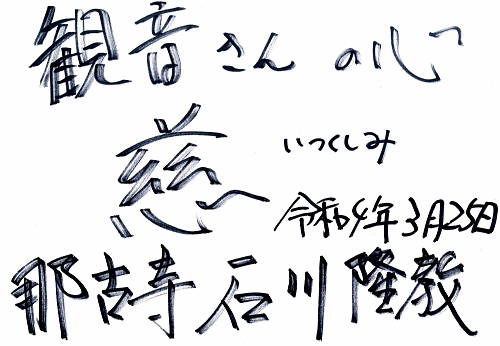 観音さんの心
慈 いつくしみ
令和4年3月25日
那古寺 石川隆教